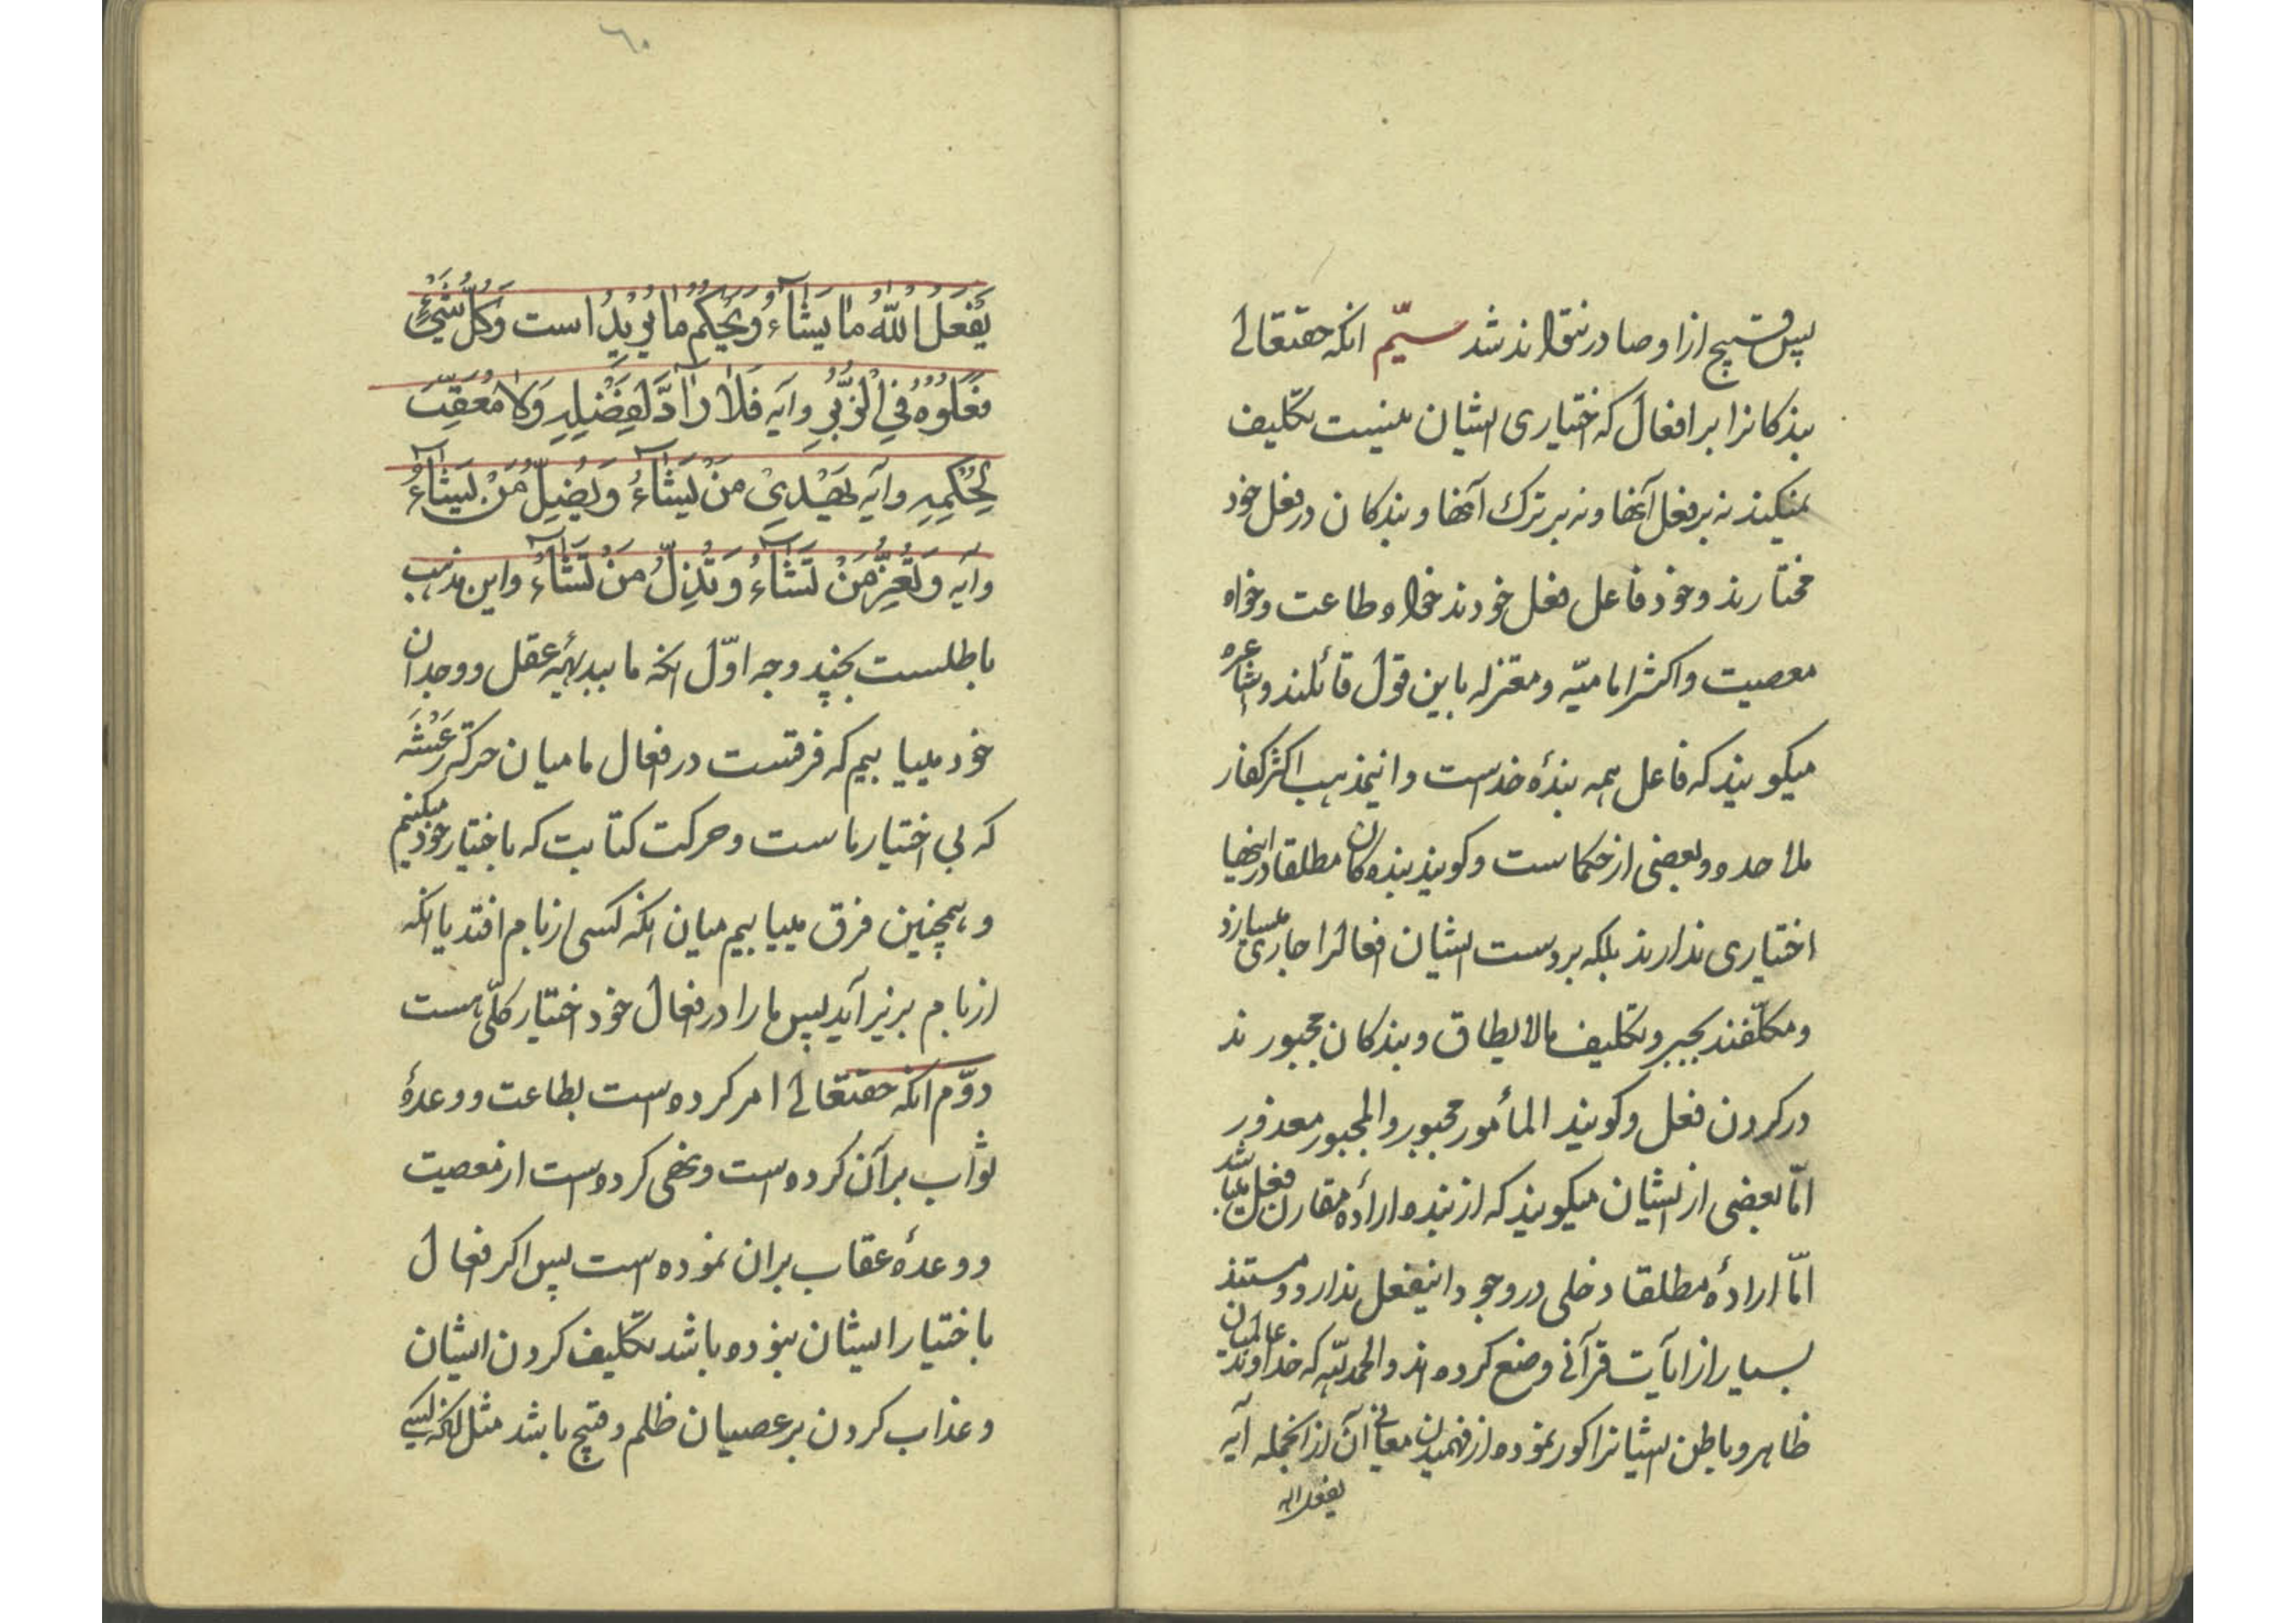 پس قبیح ازاو صادر نتواند شد سیّم انکه حقتعالی
بندکانرا بر افعال که اختیاری ایشان نیست تکلیف
نمیکند نه بر فعل آنها و نه بر ترک آنها و بندکان در فعل خود
مختارند و خود فاعل فعل خودند خواه طاعت و خواه
معصیت و اکثر امامیّه و معتزله باین قول قائلند و اشاعره
میکویند که فاعل همه بندهٔ خداست و اینمذهب اکثر کفار
ملاحده و بعضی از حکماست و کویند بنده کان مطلقا در اینها
اختیاری ندارند بلکه بر دست ایشان افعالرا جاری میسازد
و مکلّفند بجبر و تکلیف مالایطاق و بندکان مجبورند
در کردن فعل و کویند المأمور مجبور والمجبور معذور
امّا بعضی از ایشان میکویند که از بنده ارادهٔ مقارن فعل میباشد
امّا ارادهٔ مطلقا دخلی در وجود اینفعل ندارد و مستند
بسیار از ایات قرآنی وضع کرده اند والحمدلله که خداوند عالمیان
ظاهر و باطن ایشانرا کور نموده از فهمیدن معانی آن از آنجمله آیه
یفعل الله
٦٠
یَفْعَلُ اللّٰهُ مَا یَشَآءُ وَیَحْکُمُ مَا یُرِیْدُ است وَکُلُّ شَیْءٍ
فَعَلُوْهُ فِي الزُّبُرِ و آیه فَلَا رَآدَّ لِفَضْلِهِ وَلَا مُعَقِّبَ
لِحُکْمِهِ و آیه یَهْدِیْ مَنْ یَشَآءُ وَیُضِلُّ مَنْ یَشَآءُ
و آیه وَتُعِزُّ مَنْ تَشَآءُ وَتُذِلُّ مَنْ تَشَآءُ و این مذهب
باطلست بچند وجه اوّل انکه ما ببدیههٔ عقل و وجدان
خود مییابیم که فرقست در افعال ما میان حرکة رَعْشَه
که بی اختیار ماست و حرکت کتابت که باختیار خود میکنیم
و همچنین فرق مییابیم میان انکه کسی از بام افتد یا انکه
از بام بزیر آید پس ما را در افعال خود اختیار کلّی هست
دوّم انکه حقتعالی امر کرده است بطاعت و وعدهٔ
ثواب بر آن کرده است و نهی کرده است از معصیت
و وعدهٔ عقاب بران نموده است پس اکر افعال
باختیار ایشان نبوده باشد تکلیف کردن ایشان
و عذاب کردن بر عصیان ظلم و قبیح باشد مثل انکه کسی